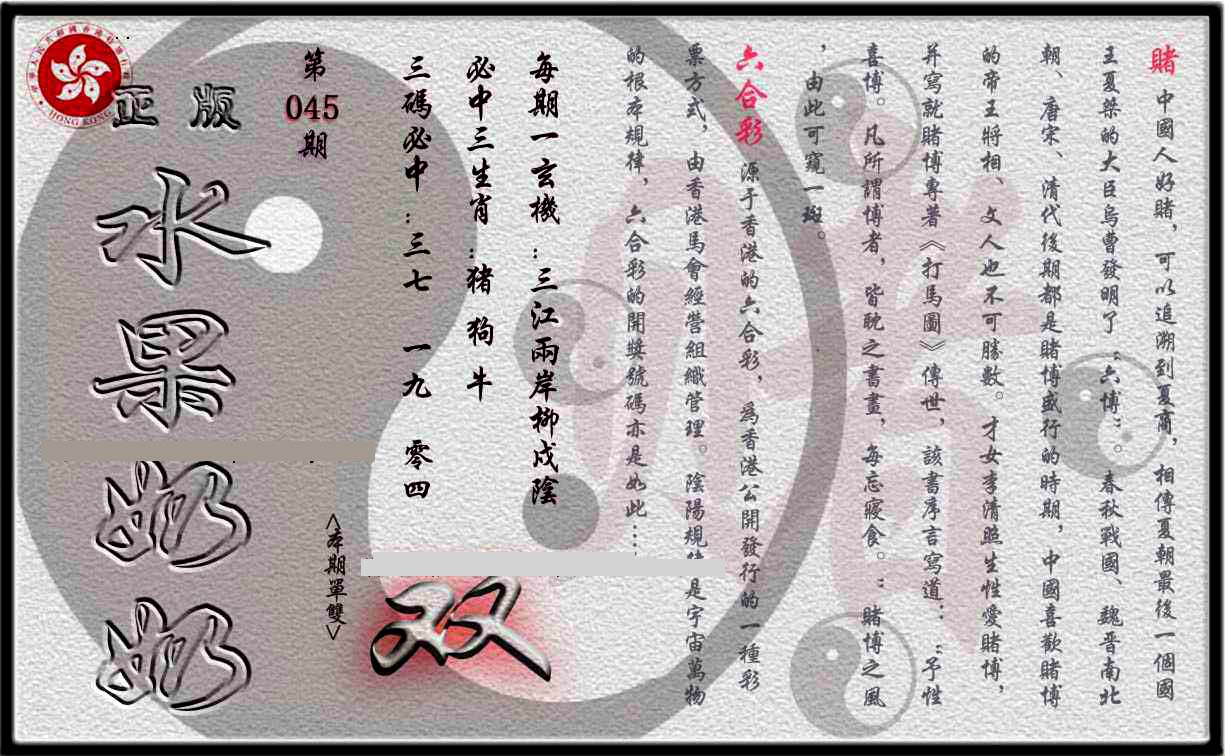 賭 中國人好賭，可以追溯到夏商，相傳夏朝最後一個國
王夏桀的大臣烏曹發明了“六博”。春秋戰國、魏晋南北
朝、唐宋、清代後期都是賭博盛行的時期，中國喜歡賭博
的帝王將相、文人也不可勝數。才女李清照生性愛賭博，
并寫就賭博專著《打馬圖》傳世，該書序言寫道：“予性
喜博。凡所謂博者，皆耽之書畫，每忘寢食。“賭博之風
，由此可窺一斑。
六合彩 源于香港的六合彩，為香港公開發行的一種彩
票方式，由香港馬會經營組織管理。陰陽規律是宇宙萬物
的根本規律，六合彩的開獎號碼亦是如此…
每期一玄機：三江兩岸柳成陰
必中三生肖：猪 狗 牛
三碼必中：三七 一九 零四
第
045
期
<本期單雙>
双
正版
水果奶奶
HONG KONG